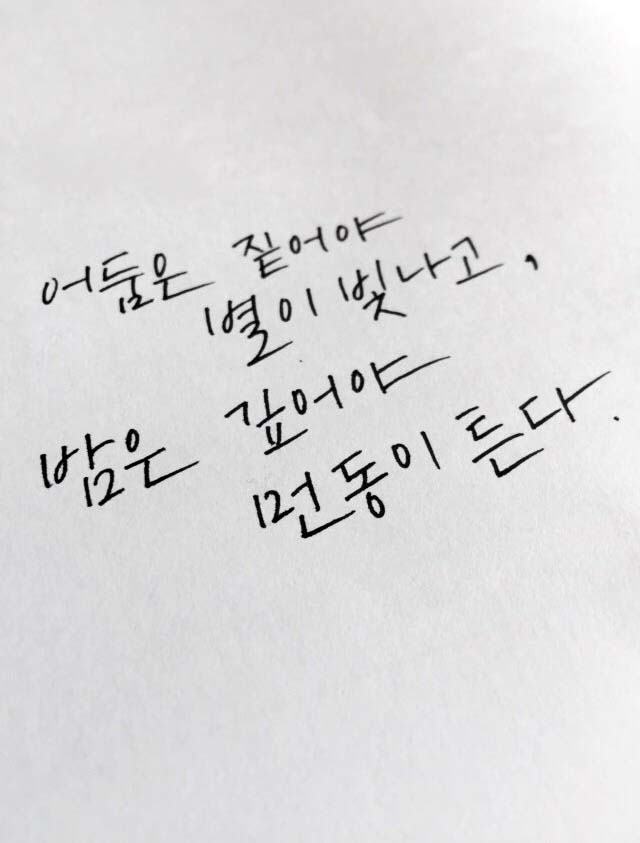 어둠은 짙어야
별이 빛나고,
밤은 깊어야
먼동이 튼다.